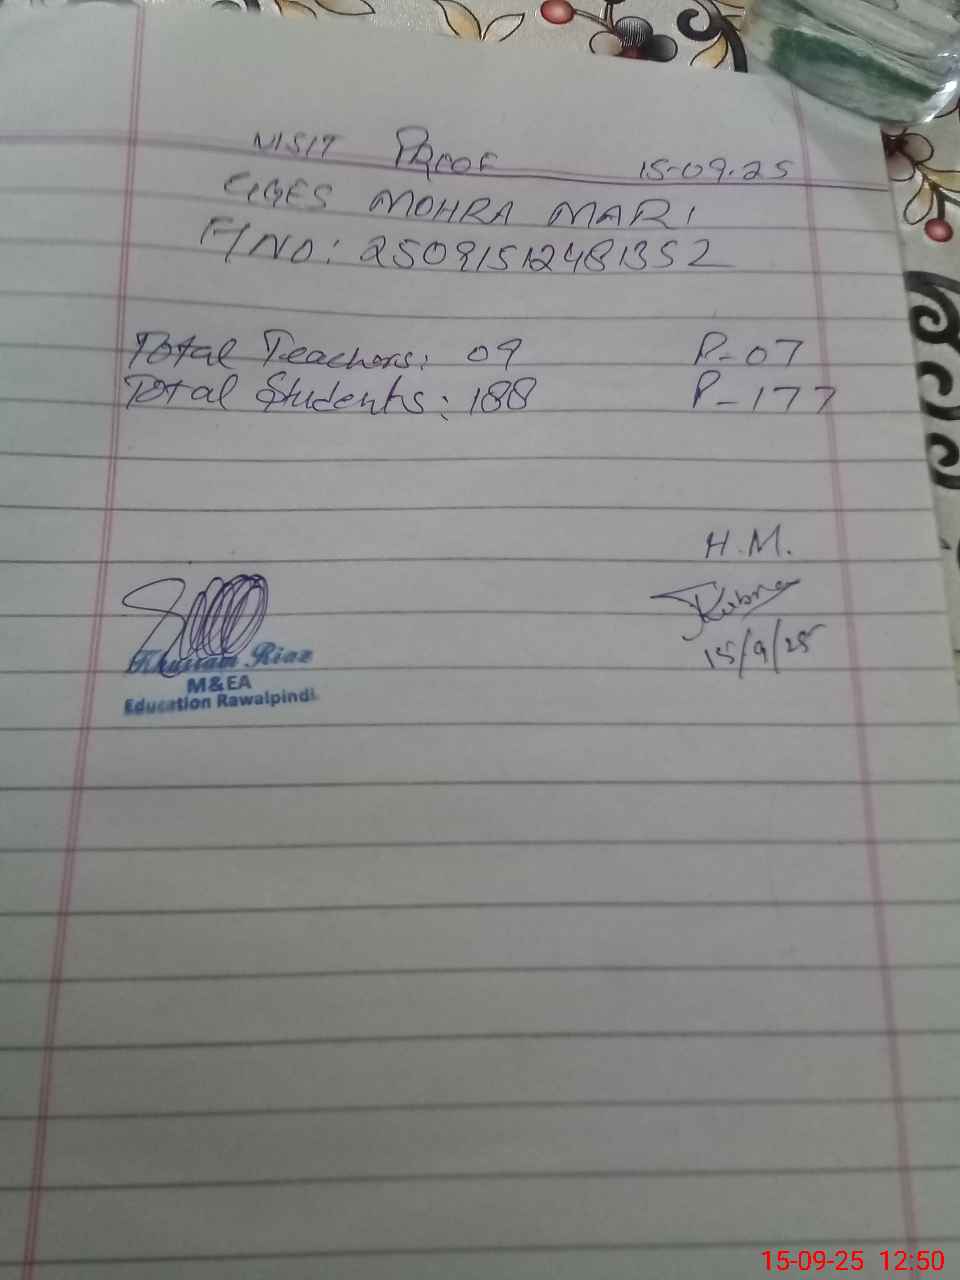 VISIT PROOF 15-09-25
GGES MOHRA MARI
F/NO: 25091512481352
Total Teachers: 09 P-07
Total Students: 188 P-177
H.M.
Rubna
15/9/25
Khurram Riaz
M&EA
Education Rawalpindi
15-09-25 12:50